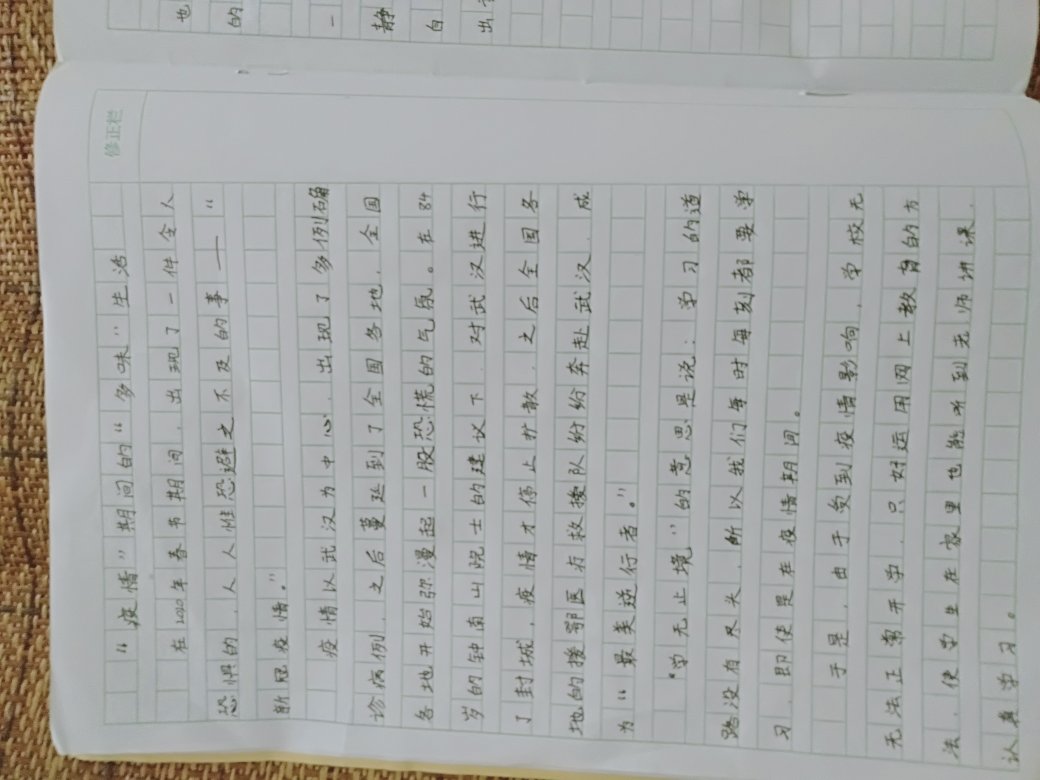 也
的
一
静
白
出
修正栏
“疫情”期间的“多味”生活
在2020年春节期间，出现了一件令人
恐惧的，人人惟恐避之不及的事——“
新冠疫情。”
疫情以武汉为中心，出现了多例确
诊病例，之后蔓延到了全国各地，全国
各地开始弥漫起一股恐慌的气氛。在84
岁的钟南山院士的建议下，对武汉进行
了封城，疫情才停止扩散，之后全国各
地的援鄂医疗救援队纷纷奔赴武汉，成
为“最美逆行者。”
“学无止境”的意思是说：学习的道
路没有尽头，所以我们每时每刻都要学
习，即使是在疫情期间。
于是，由于受到疫情影响，学校无
无法正常开学，只好运用网上教育的方
法，使学生在家里也能听到老师讲课，
认真学习。